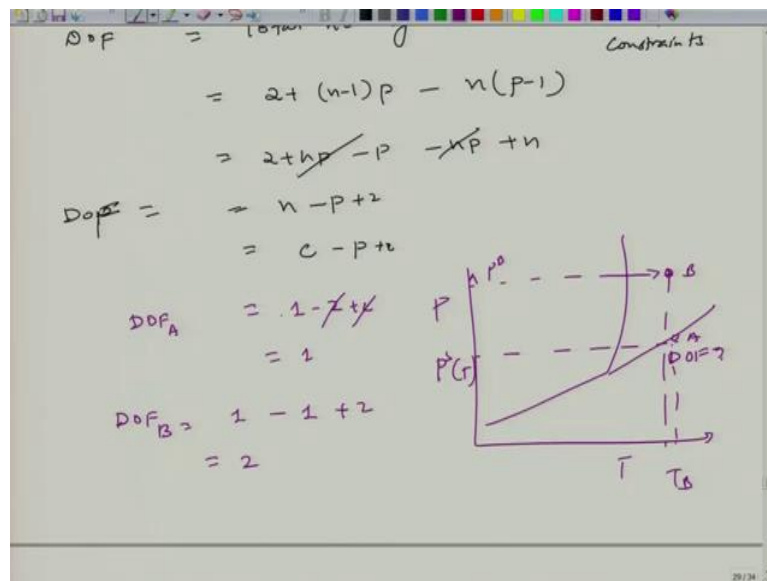 DOF =
Constraints
= 2 + (n-1) p - n(p-1)
= 2 + np - p - np + n
DOF = = n - p + 2
= c - p + 2
DOF_A = 1 - 2 + 2
= 1
DOF_B = 1 - 1 + 2
= 2
P^B
B
P
A
P^s(T)
DOF=?
T
T_B
29/34